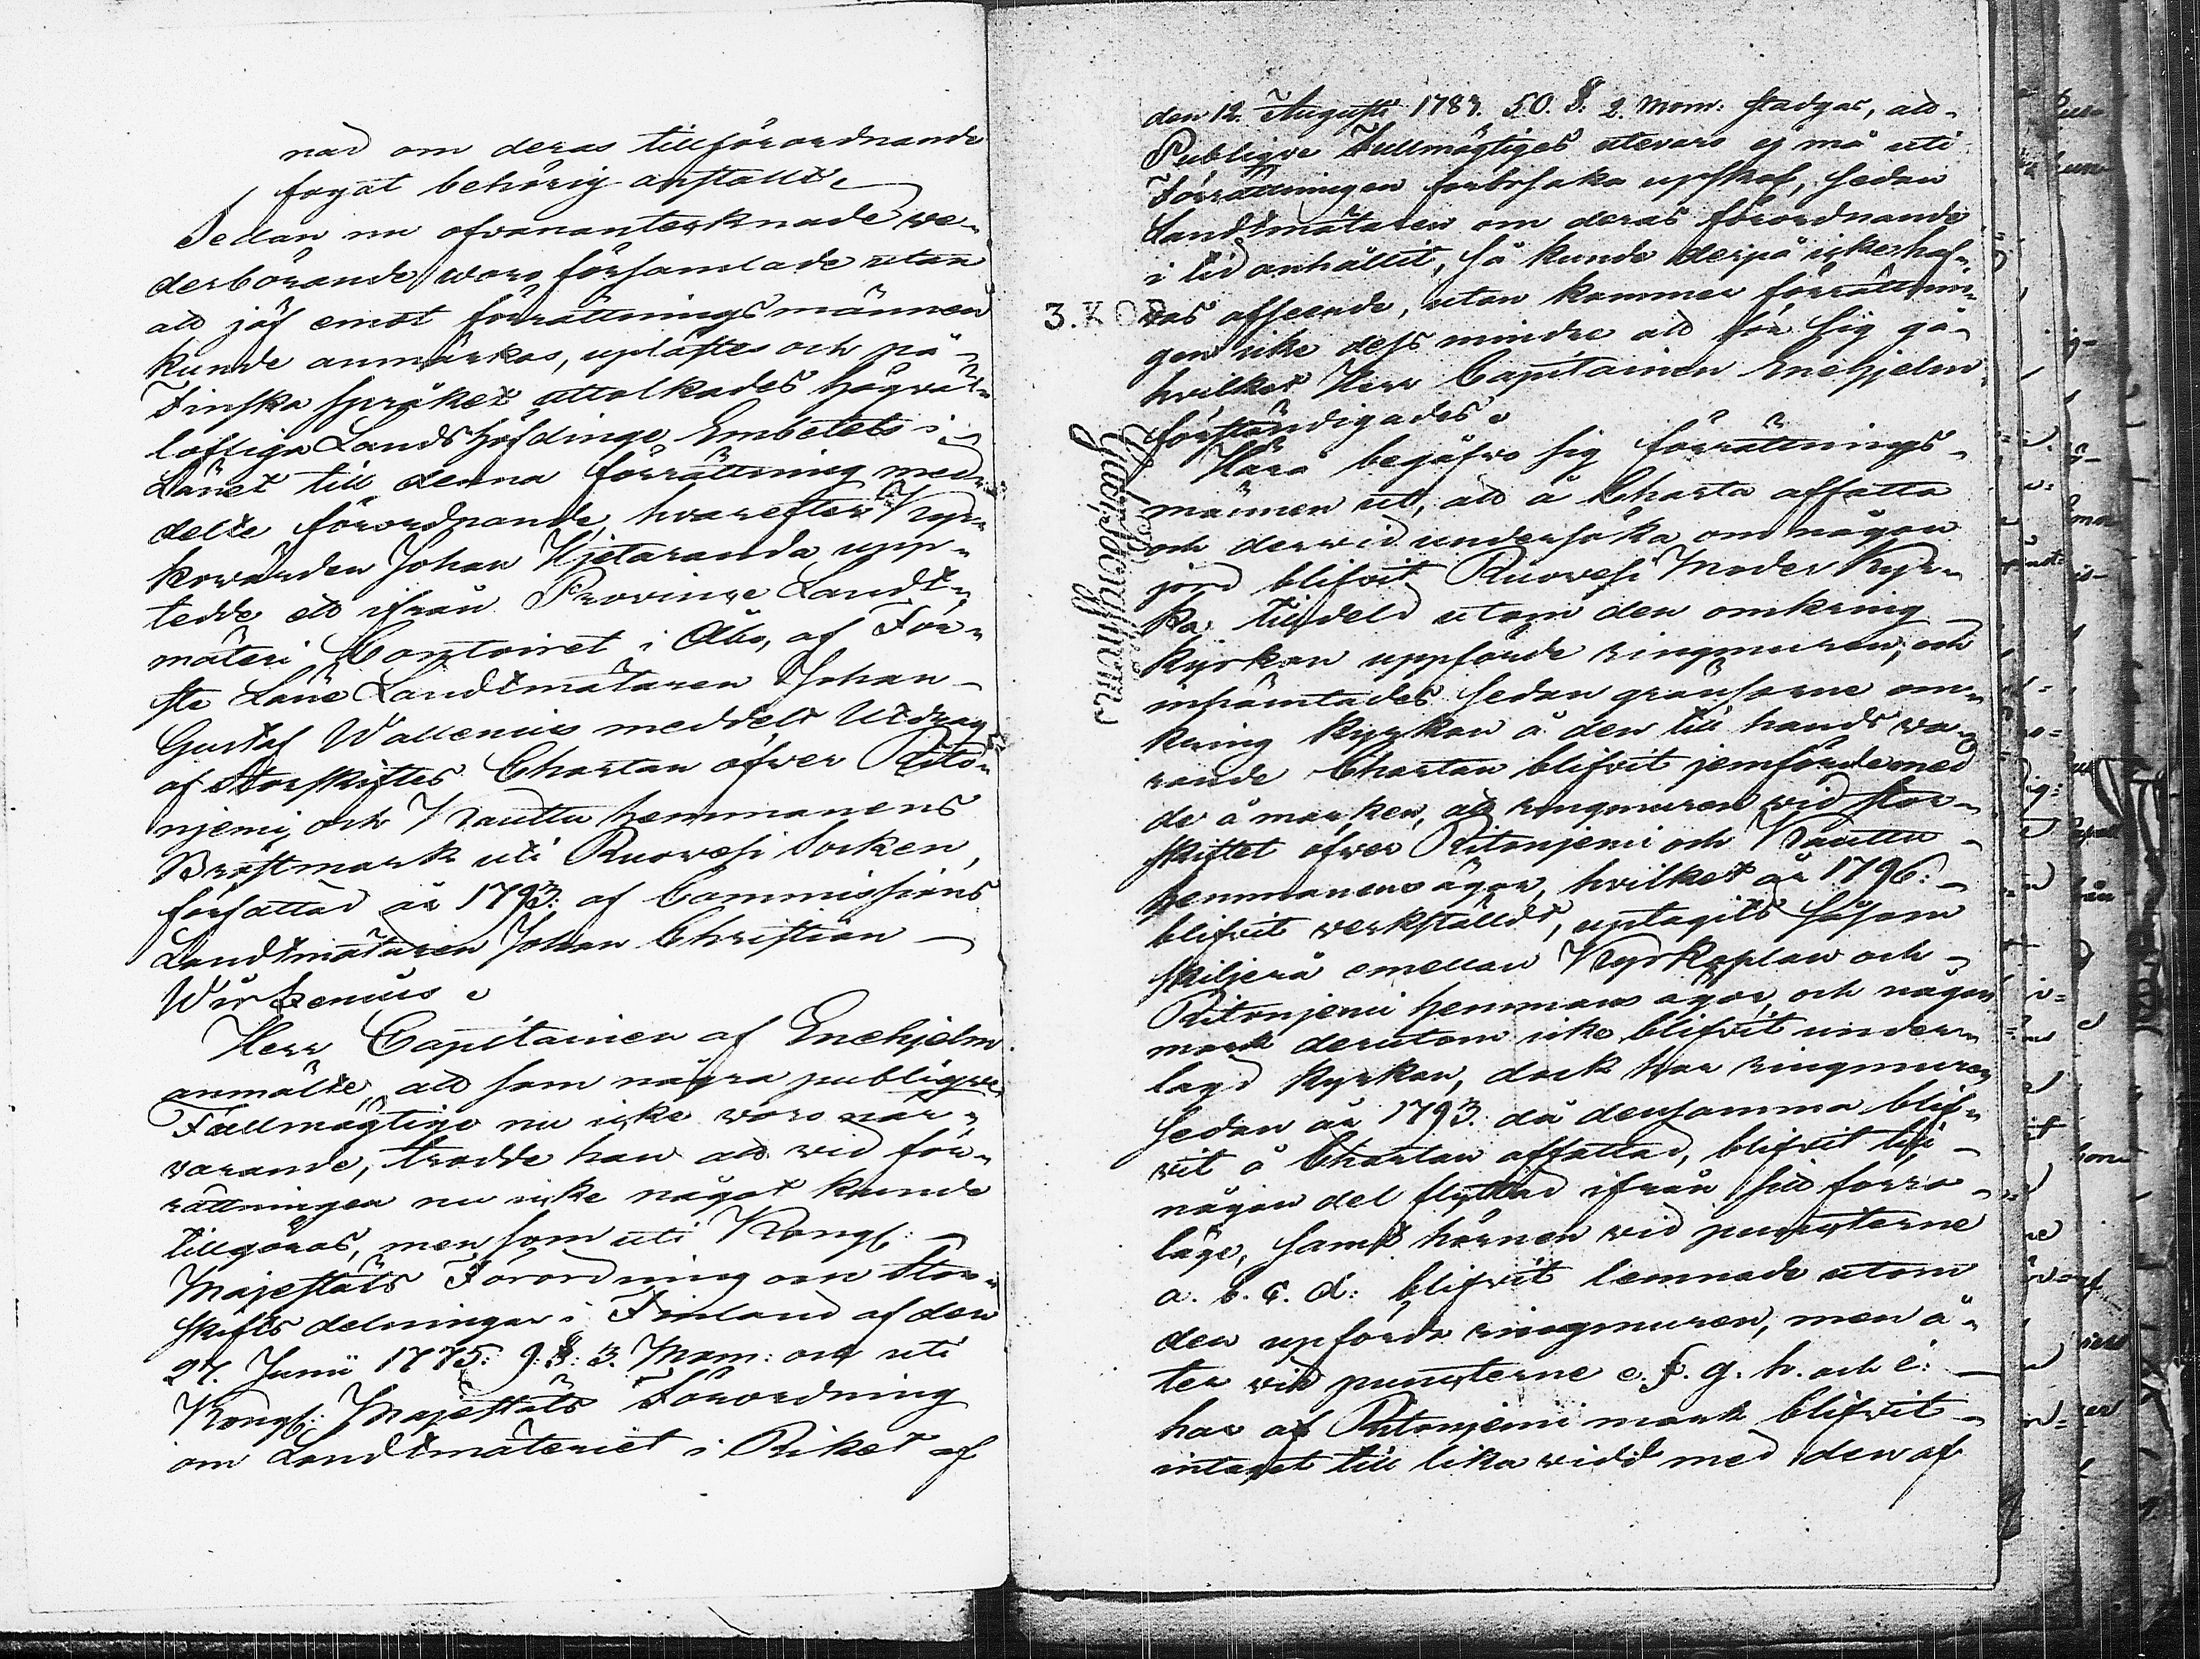 nad om deras tillförordnande
fogat behörig anstallt.
Sedan nu ofvananteknade we-
derbörande woro församlade utan
att jäf emot förrättningsmännen
kunde anmärkas, uplästes och på
Finska språket uttolkades högväl-
lofliga Landshöfdinge Embetets i
Länet till denna förrättning med-
delte förordnande, hvarefter Kyr-
kovärden Johan Hjetaranda upp-
tedde ett ifrån Province Landt-
mäteri Contoiret i Åbo, af För-
sta Läne Landtmätaren Johan
Gustaf Wallenius meddelt Utdrag
af Storskiftes Chartan öfver Rito-
njemi och Krauttu hemmanens
Qväftmark uti Ruovesi Socken,
författad år 1793: af Commissions
Landtmätaren Johan Christian
Wirzenius.
Herr Capitainen af Enehjelm
anmälte, att som några publique
Fullmägtige nu icke voro när-
varande, trodde han att vid för-
rättningen nu icke något kunde
tillgöras, men som uti Kongl:
Majestäts Förordning om Stor-
skifts delningar i Finland af den
27. Junii 1775: 9. §: 3. Mom: och uti
Kongl: Majestäts Förordning
om Landtmäteriet i Riket af
den 12. Augusti 1783. 50. §. 2. Mom: stadgas, att
Publique Fullmägtiges utevaro ej må uti
Förrättningen förorsaka upskof, sedan
Landtmätaren om deras förordnande
i tid anhållit, så kunde derpå icke haf-
3. KOP
vas afseende, utan kommer förrättnin-
gen icke dess mindre att för sig gå
hvilket Herr Capitainen Enehjelm
förständigades.
Häre begåfvo sig förrättnings-
männen ut, att å Charta affatta
och dervid undersöka om någon
jord blifvit Ruovesi Moder Kyr-
ka tilldeld utom den omkring
Kyrkan uppförde ringmuren; och
inhämtades sedan gränsorne om-
kring Kyrkan å den till hands va-
rande Chartan blifvit jemförde med
de å marken, att ringmuren vid stor-
skiftet öfver Ritonjemi och Krauttu
hemmanens ägor, hvilket år 1796:
blifvit verkställdt, uptagits såsom
skiljerå emellan Kyrkoplan och
Ritonjemi hemmans ägor, och någon
mark derutom icke blifvit under-
lagd Kyrkan, dock har ringmuren
sedan år 1793: då densamma blif-
vit å Chartan affattad, blifvit till
någon del flyttad ifrån sitt förra
läge, samt hörnen vid puncterne
a. b. c. d: blifvit lemnade utom
den upförda ringmuren, men å-
ter vid puncterne e. f. g. h. och i:
har af Ritonjemi mark blifvit
intaget till lika vidd med den af